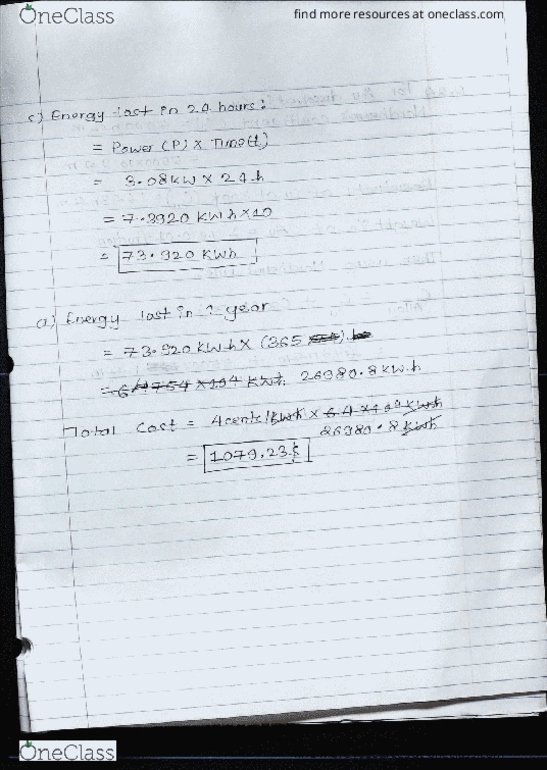 OneClass
find more resources at oneclass.com
c) Energy lost in 24 hours:
= Power (P) x Time(t)
= 3.08kW x 24h
= 7.3920 kWh x 10
= 73.920 kWh
a) Energy lost in 1 year
= 73.920 kWh x (365
26980.8 kW.h
Total Cost = 4cents/kwh x 6.4 x10⁴ kwh
26980.8 kwh
= 1079.23$
OneClass